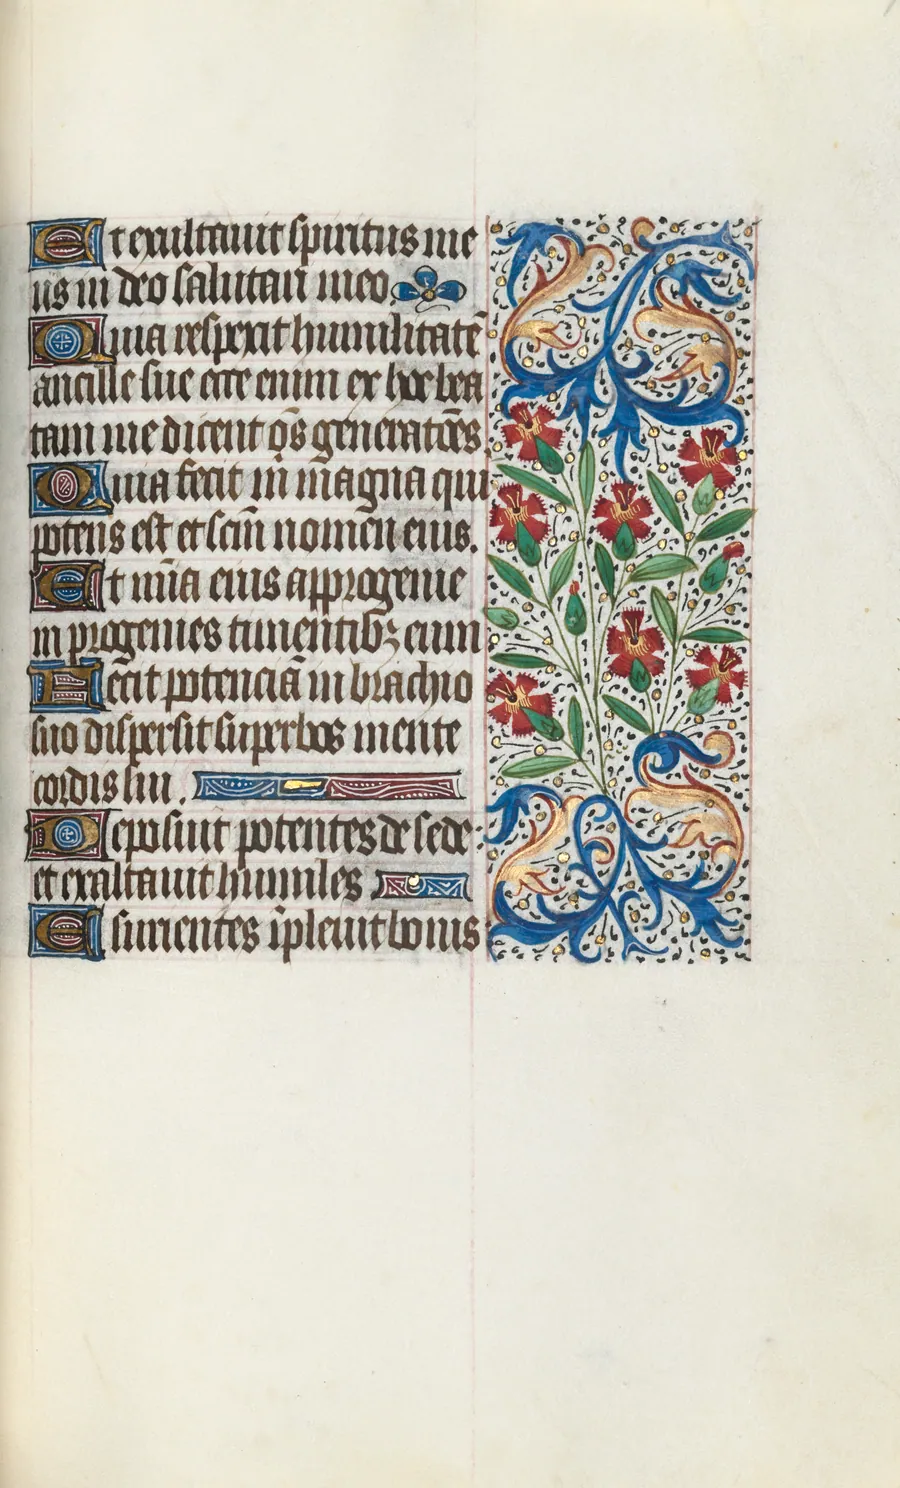 Et exultauit spiritus me
us in deo salutari meo.
Quia respexit humilitatē
ancille sue ecce enim ex hoc bea
tam me dicent ōs generatōes.
Quia fecit m̄ magna qui
potens est et scm̄ nomen eius.
Et mīa eius a progenie
in progenies timentibꝫ eum
Fecit potenciā in brachio
suo dispersit superbos mente
cordis sui.
Deposuit potentes de sede:
et exaltauit humiles
Esurientes īpleuit bonis